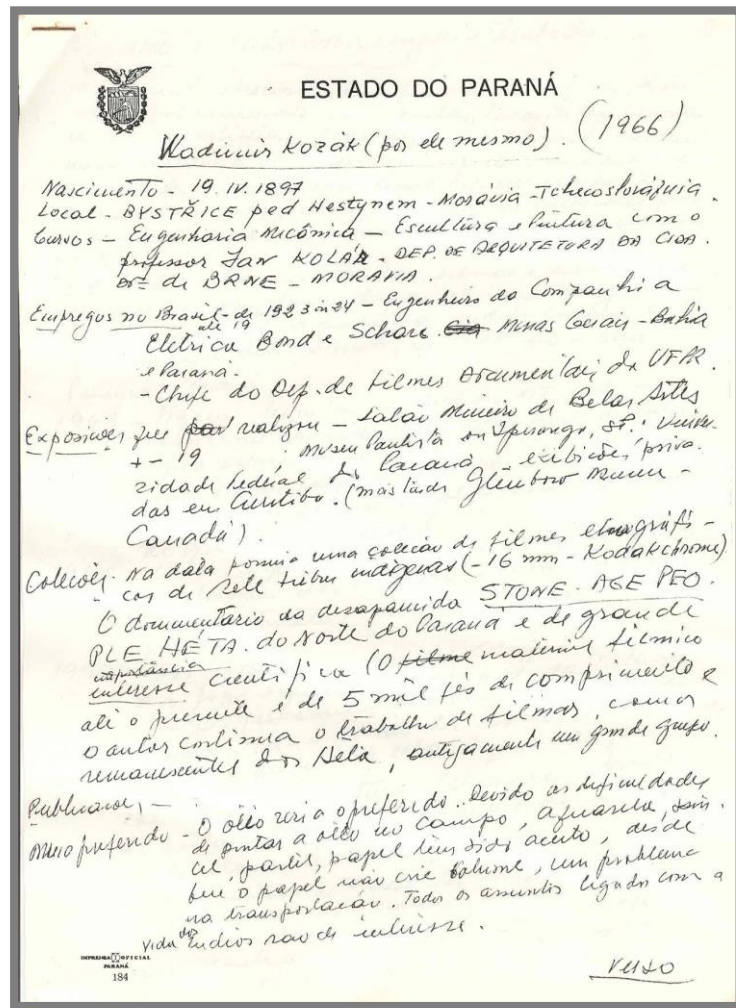 ESTADO DO PARANÁ
Wladimir Kozák (por ele mesmo). (1966)
Nascimento - 19. IV. 1897
Local - BYSTŘICE pod Hestynem - Morávia - Tchecoslováquia.
Cursos - Engenharia Mecânica - Escultura e Pintura com o
professor JAN KOLÁR - DEP. DE ARQUITETURA DA CIDA.
DE de BRNE - MORAVIA.
Empregos no Brasil - de 1923 ou 24 - Engenheiro da Companhia
até 19
Eletrica Bond e Schare. Cia Minas Gerais - Bahia
e Paraná.
- Chefe do Dep. de Filmes Documentais da UFPR.
Exposições que realizou - Salão Mineiro de Belas Artes
+ - 19 Museu Paulista ou Ypiranga, SP. Univer-
zidade Federal do Paraná - exibições priva-
das em Curitiba. (mais tarde Glenbow Museu -
Canadá).
Coleções - Na data possuia uma coleção de filmes etnográfi-
cos de sete tribus indígenas (- 16 mm - Kodakchrome)
O documentário da desaparecida STONE - AGE PEO.
PLE HÉTA. do Norte do Paraná é de grande
importância
interesse cientifica (O filme material filmico
até o presente é de 5 mil pés de comprimento e
o autor continua o trabalho de filmar, com os
remanescentes dos Héta, antigamente um grande grupo.
Publicações, -
Meio preferido - O óleo seria o preferido. Devido as dificuldades
de pintar a oleo no campo, aquarela,
pastel, papel tem sido aceito, desde
que o papel não crie volume, um problema
na transportação. Todos os assuntos ligados com a
vida dos Índios são de interesse.
IMPRENSA OFICIAL
PARANÁ
184
VERSO